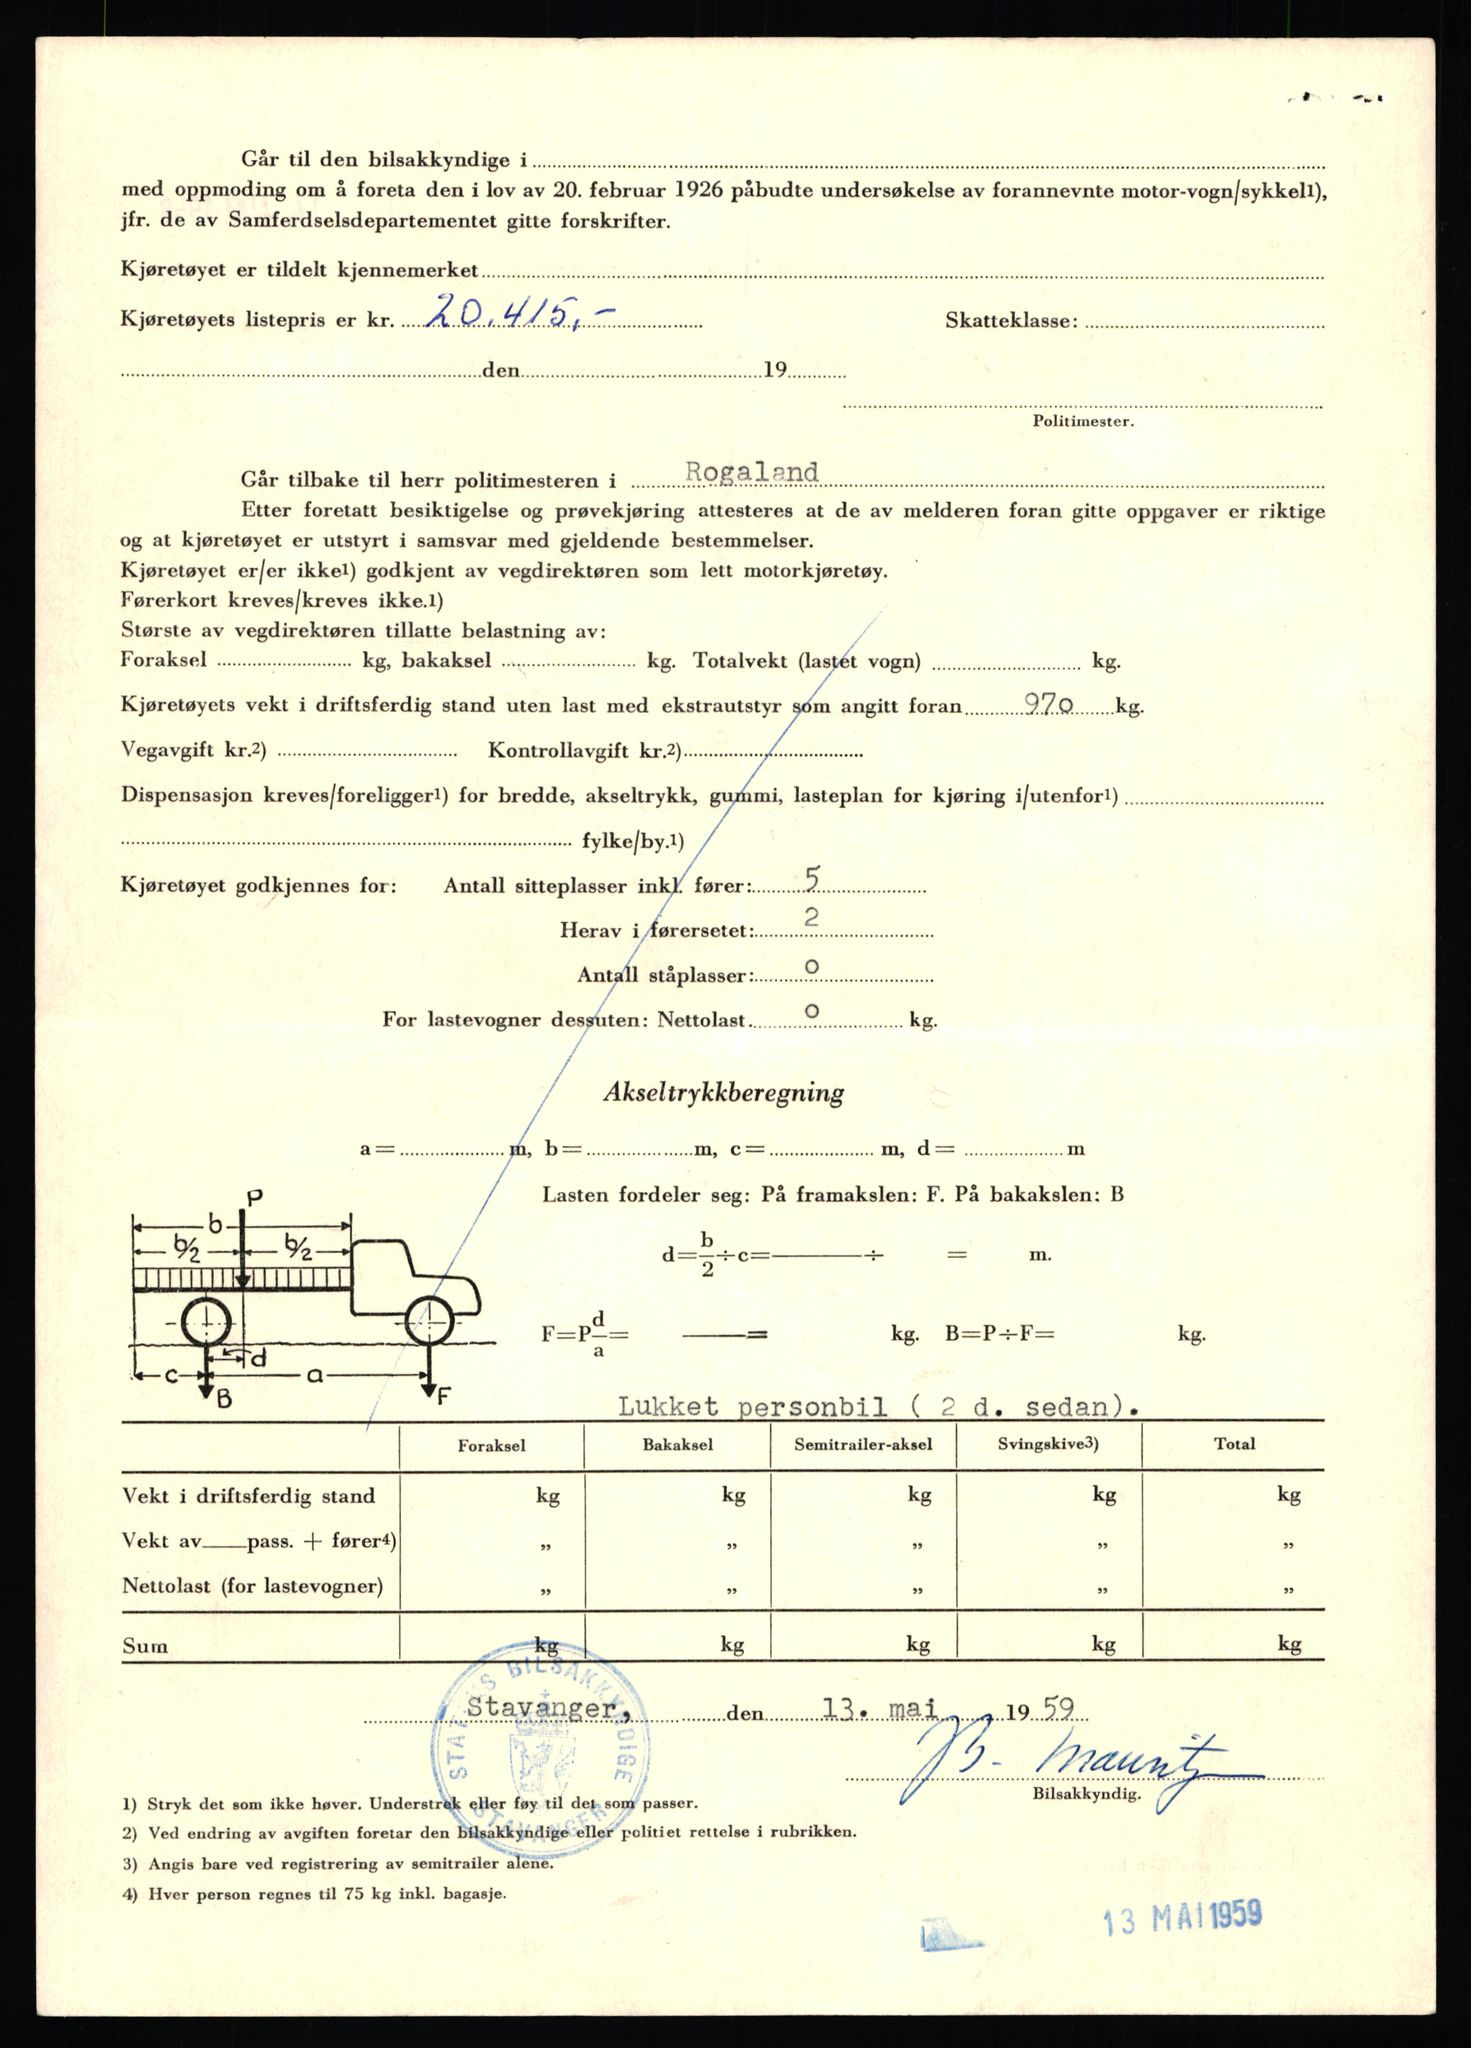 Går til den bilsakkyndige i
med oppmoding om å foreta den i lov av 20. februar 1926 påbudte undersøkelse av forannevnte motor-vogn/sykkel1),
jfr. de av Samferdselsdepartementet gitte forskrifter.
Kjøretøyet er tildelt kjennemerket
Kjøretøyets listepris er kr. 20.415,- Skatteklasse:
den 19
Politimester.
Går tilbake til herr politimesteren i Rogaland
Etter foretatt besiktigelse og prøvekjøring attesteres at de av melderen foran gitte oppgaver er riktige
og at kjøretøyet er utstyrt i samsvar med gjeldende bestemmelser.
Kjøretøyet er/er ikke1) godkjent av vegdirektøren som lett motorkjøretøy.
Førerkort kreves/kreves ikke.1)
Største av vegdirektøren tillatte belastning av:
Foraksel kg, bakaksel kg. Totalvekt (lastet vogn) kg.
Kjøretøyets vekt i driftsferdig stand uten last med ekstrautstyr som angitt foran 970 kg.
Vegavgift kr.2) Kontrollavgift kr.2)
Dispensasjon kreves/foreligger1) for bredde, akseltrykk, gummi, lasteplan for kjøring i/utenfor1)
fylke/by.1)
Kjøretøyet godkjennes for: Antall sitteplasser inkl. fører: 5
Herav i førersetet: 2
Antall ståplasser: 0
For lastevogner dessuten: Nettolast 0 kg.
Akseltrykkberegning
a = m, b = m, c = m, d = m
Lasten fordeler seg: På framakslen: F. På bakakslen: B
P
b
b/2 b/2
d = b/2 ÷ c = ÷ = m.
F = P d/a = = kg. B = P ÷ F = kg.
c d a
B F
Lukket personbil ( 2 d. sedan).
Foraksel Bakaksel Semitrailer-aksel Svingskive3) Total
Vekt i driftsferdig stand kg kg kg kg kg
Vekt av pass. + fører4) „ „ „ „ „
Nettolast (for lastevogner) „ „ „ „ „
Sum kg kg kg kg kg
STATENS BILSAKKYNDIGE
STAVANGER
Stavanger, den 13. mai 1959
B. Mauritz
Bilsakkyndig.
1) Stryk det som ikke høver. Understrek eller føy til det som passer.
2) Ved endring av avgiften foretar den bilsakkyndige eller politiet rettelse i rubrikken.
3) Angis bare ved registrering av semitrailer alene.
4) Hver person regnes til 75 kg inkl. bagasje.
13 MAI 1959